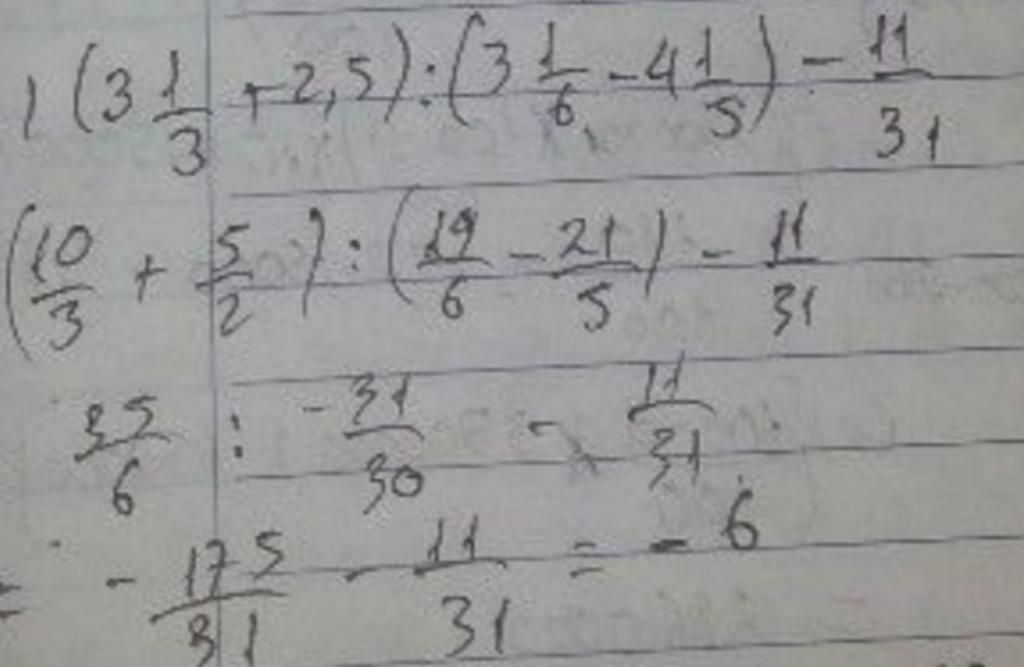 1 (3 1/3 + 2,5) : (3 1/6 - 4 1/5) - 11/31
(10/3 + 5/2) : (19/6 - 21/5) - 11/31
35/6 : - 31/30 - 11/31
= - 175/31 - 11/31 = - 6